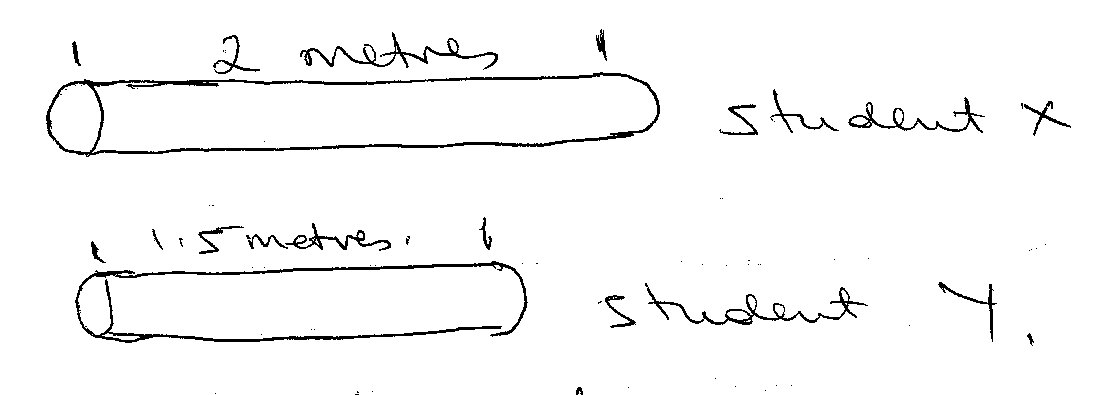 2 metres
student X
1.5 metres.
student Y.